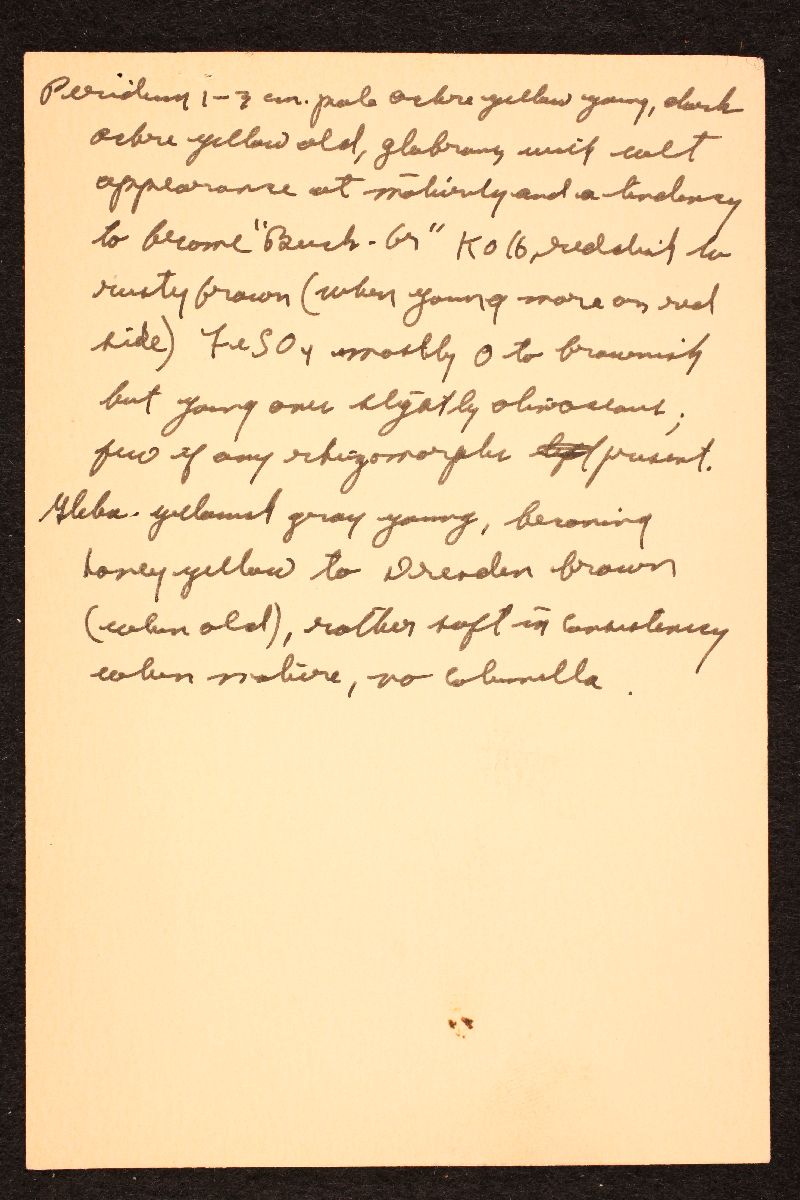 Peridium 1-3 cm. pale ochre yellow young, dark
ochre yellow old, glabrous with felt
appearance at maturity and a tendency
to become "Buck-br" KOH, reddish to
rusty brown (when young more on red
side) FeSO4 mostly O to brownish
but young ones slightly olivaceous;
few if any rhizomorphs present.
Gleba - yellowish gray young, becoming
honey yellow to Dresden brown
(when old), rather soft in consistency
when mature, no columella.